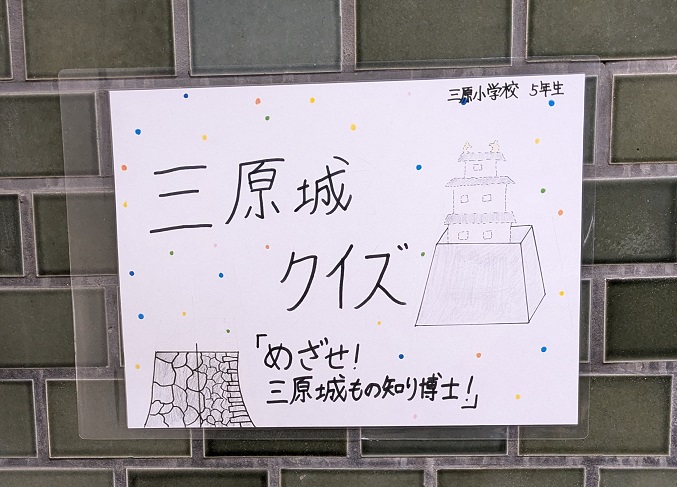 三原小学校 5年生
三原城
クイズ
「めざせ!
三原城もの知り博士!」